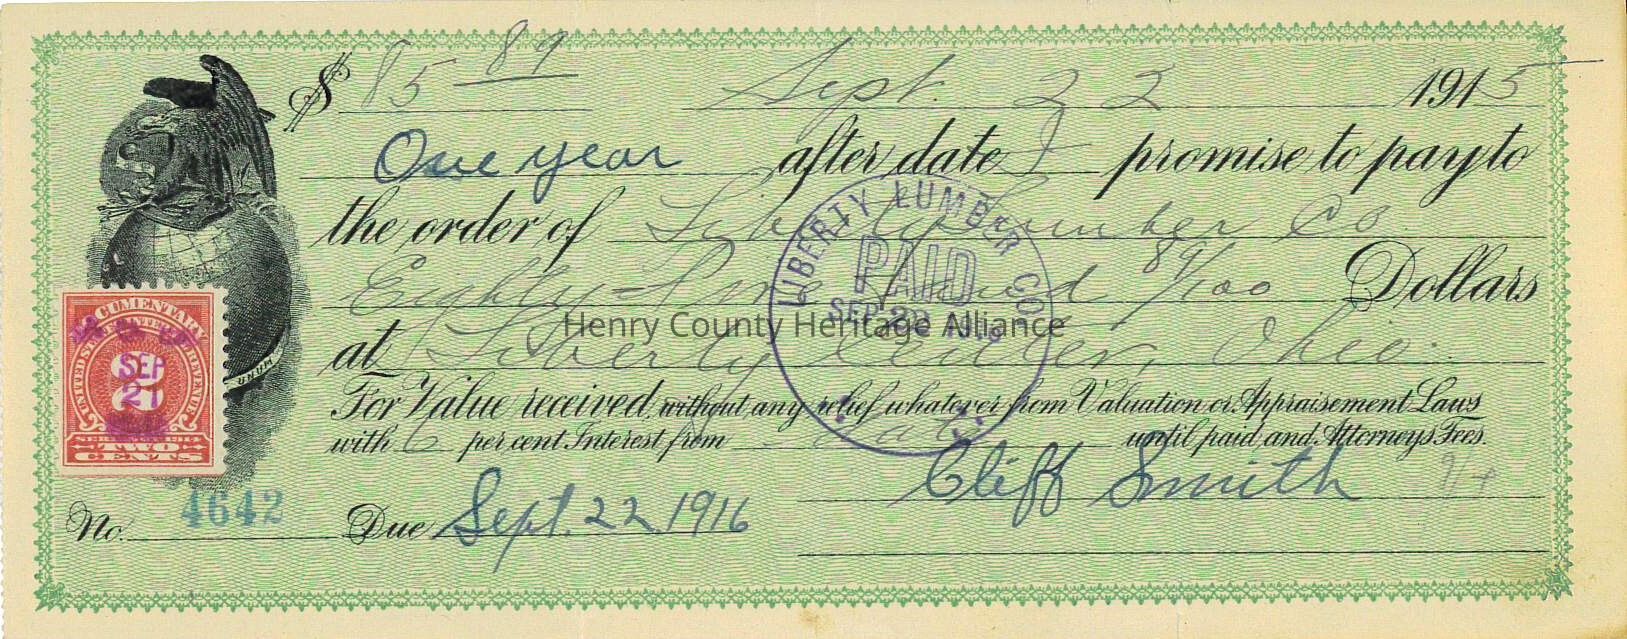 $ 85 - 89 Sept. 22 1915
One year after date I promise to pay to
the order of Liberty Lumber Co.
Eighty-five and 89/100 Dollars
at Liberty Center, Ohio.
For Value received, without any relief whatever from Valuation or Appraisement Laws
with 6 per cent Interest from until paid and Attorneys Fees.
Cliff Smith
No. 4642 Due Sept. 22 1916
LIBERTY LUMBER CO
PAID
SEP 22
Henry County Heritage Alliance
DOCUMENTARY
UNITED STATES INTERNAL REVENUE
2
SERIES OF 1914
TWO
CENTS
SEP
21
UNUM